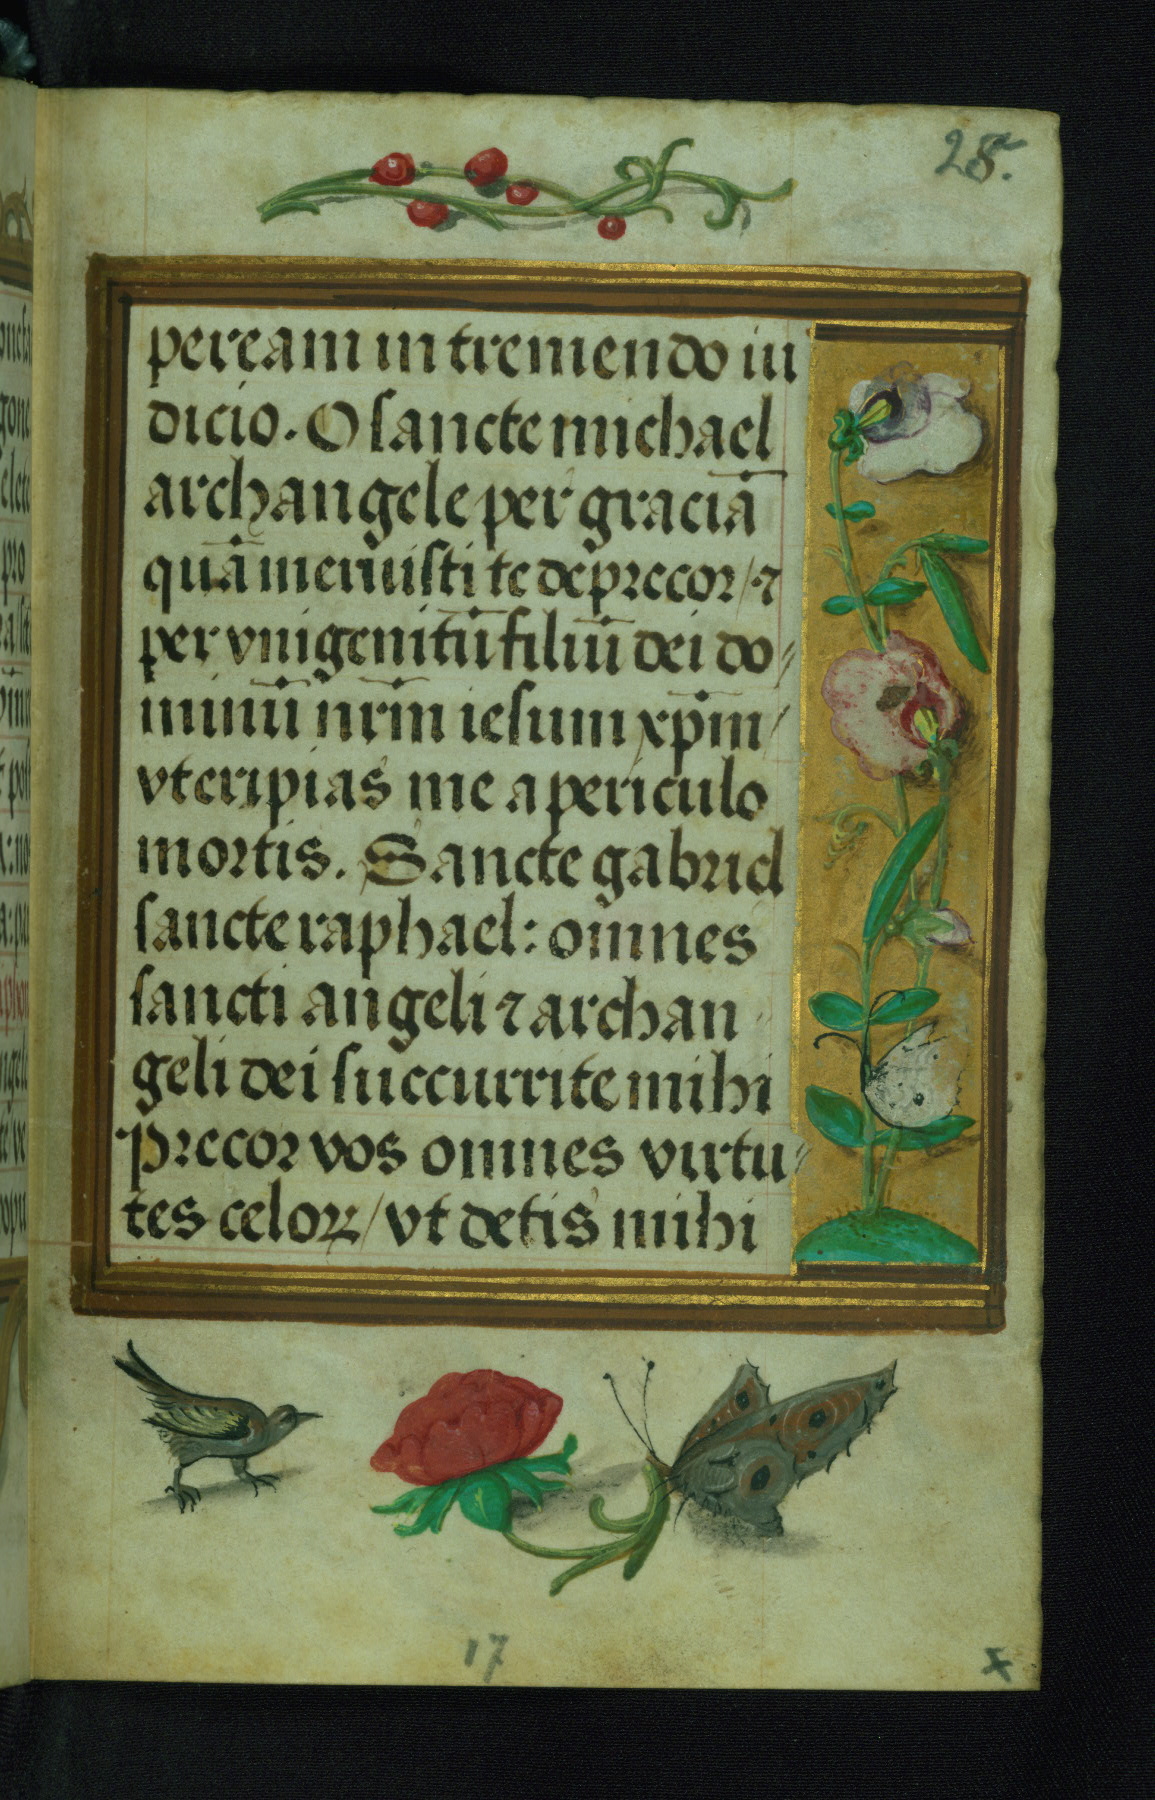 28.
pereám in tremendo iu
dicio. O sancte michael
archangele per graciā
quā meruisti te deprecor / ⁊
per vnigenitū filiū dei do⸗
minū nr̄m iesum xp̄m /
vt eripias me a periculo
mortis. Sancte gabriel
sancte raphael: omnes
sancti angeli ⁊ archan
geli dei succurrite mihi
Precor vos omnes virtu⸗
tes celoꝝ / vt detis mihi
17
x